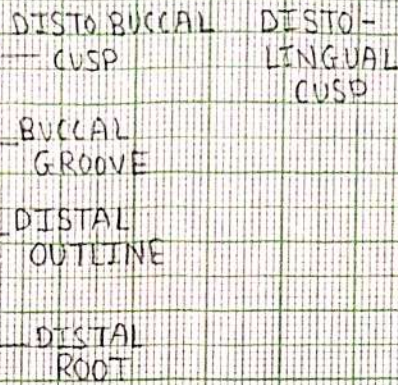 DISTO BUCCAL
CUSP
DISTO-
LINGUAL
CUSP
BUCCAL
GROOVE
DISTAL
OUTLINE
DISTAL
ROOT